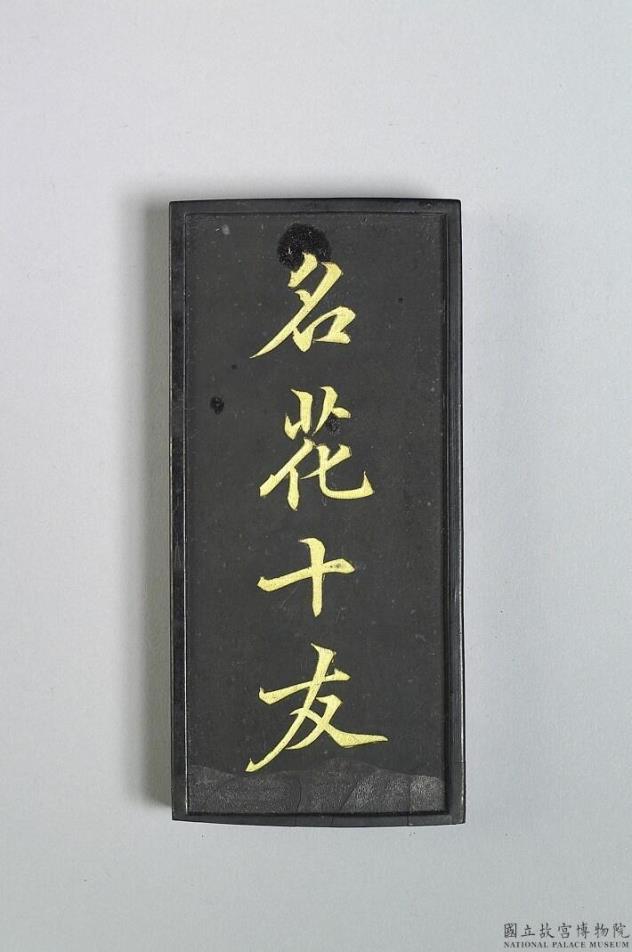 名花十友
國立故宮博物院
NATIONAL PALACE MUSEUM